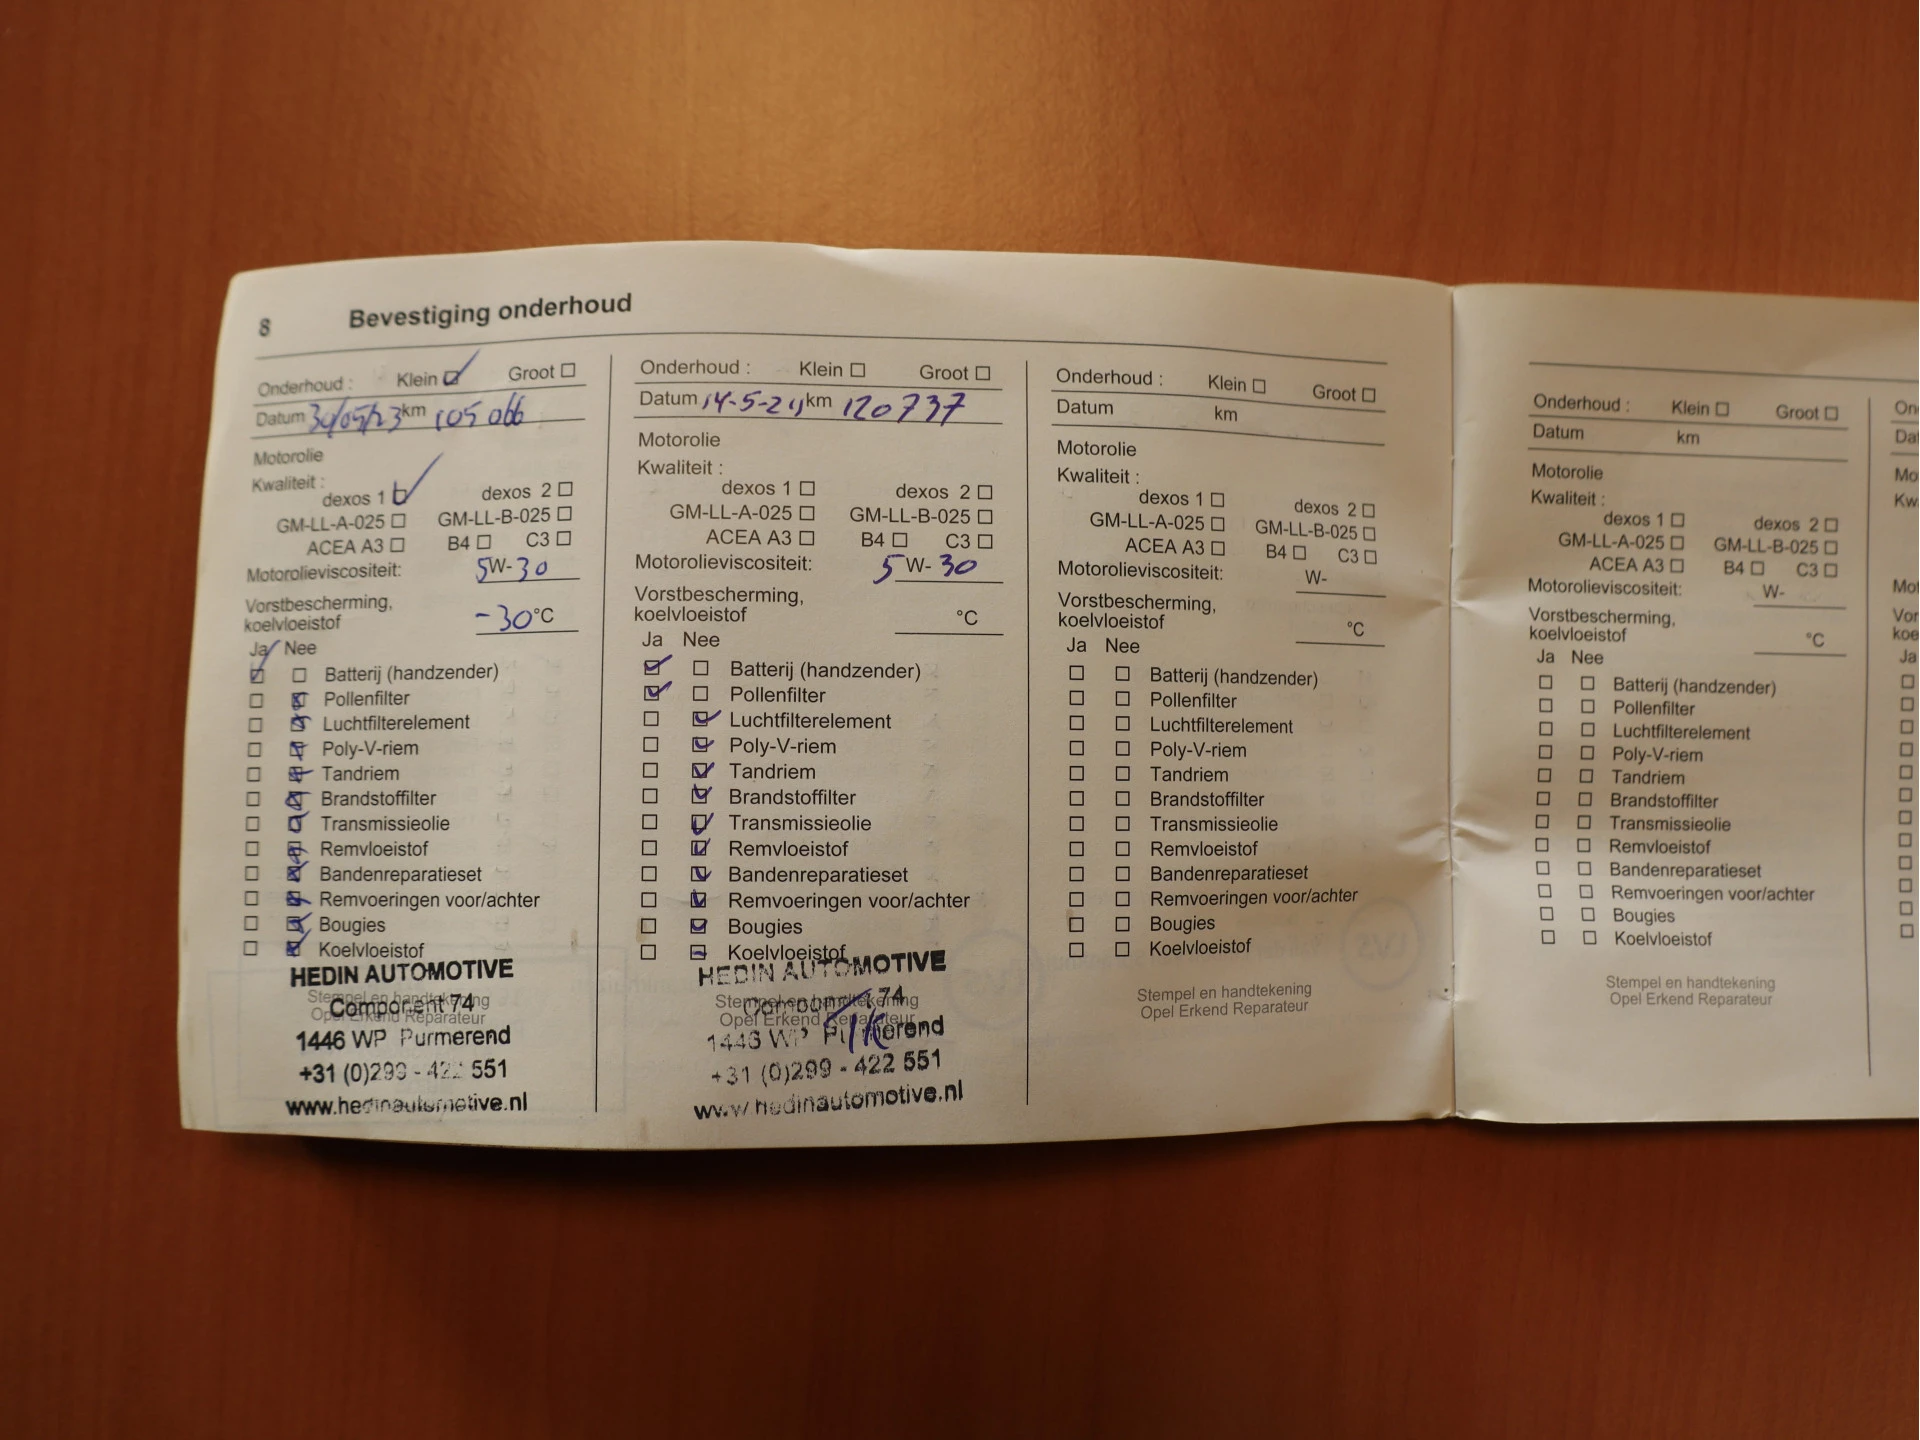 8 Bevestiging onderhoud
Onderhoud : Klein Groot
Datum 30/05/23 km 105 066
Motorolie
Kwaliteit :
dexos 1 dexos 2
GM-LL-A-025 GM-LL-B-025
ACEA A3 B4 C3
Motorolieviscositeit: 5W-30
Vorstbescherming,
koelvloeistof -30°C
Ja Nee
Batterij (handzender)
Pollenfilter
Luchtfilterelement
Poly-V-riem
Tandriem
Brandstoffilter
Transmissieolie
Remvloeistof
Bandenreparatieset
Remvoeringen voor/achter
Bougies
Koelvloeistof
HEDIN AUTOMOTIVE
Stempel en handtekening
Component 74
Opel Erkend Reparateur
1446 WP Purmerend
+31 (0)299 - 422 551
www.hedinautomotive.nl
Onderhoud : Klein Groot
Datum km 120737
Motorolie
Kwaliteit :
dexos 1 dexos 2
GM-LL-A-025 GM-LL-B-025
ACEA A3 B4 C3
Motorolieviscositeit: 5 W- 30
Vorstbescherming,
koelvloeistof °C
Ja Nee
Batterij (handzender)
Pollenfilter
Luchtfilterelement
Poly-V-riem
Tandriem
Brandstoffilter
Transmissieolie
Remvloeistof
Bandenreparatieset
Remvoeringen voor/achter
Bougies
Koelvloeistof
HEDIN AUTOMOTIVE
Stempel en handtekening
Component 74
Opel Erkend Reparateur
1446 WP Purmerend
+31 (0)299 - 422 551
www.hedinautomotive.nl
Onderhoud : Klein Groot
Datum km
Motorolie
Kwaliteit :
dexos 1 dexos 2
GM-LL-A-025 GM-LL-B-025
ACEA A3 B4 C3
Motorolieviscositeit: W-
Vorstbescherming,
koelvloeistof °C
Ja Nee
Batterij (handzender)
Pollenfilter
Luchtfilterelement
Poly-V-riem
Tandriem
Brandstoffilter
Transmissieolie
Remvloeistof
Bandenreparatieset
Remvoeringen voor/achter
Bougies
Koelvloeistof
Stempel en handtekening
Opel Erkend Reparateur
Onderhoud : Klein Groot
Datum km
Motorolie
Kwaliteit :
dexos 1 dexos 2
GM-LL-A-025 GM-LL-B-025
ACEA A3 B4 C3
Motorolieviscositeit: W-
Vorstbescherming,
koelvloeistof °C
Ja Nee
Batterij (handzender)
Pollenfilter
Luchtfilterelement
Poly-V-riem
Tandriem
Brandstoffilter
Transmissieolie
Remvloeistof
Bandenreparatieset
Remvoeringen voor/achter
Bougies
Koelvloeistof
Stempel en handtekening
Opel Erkend Reparateur
Ja